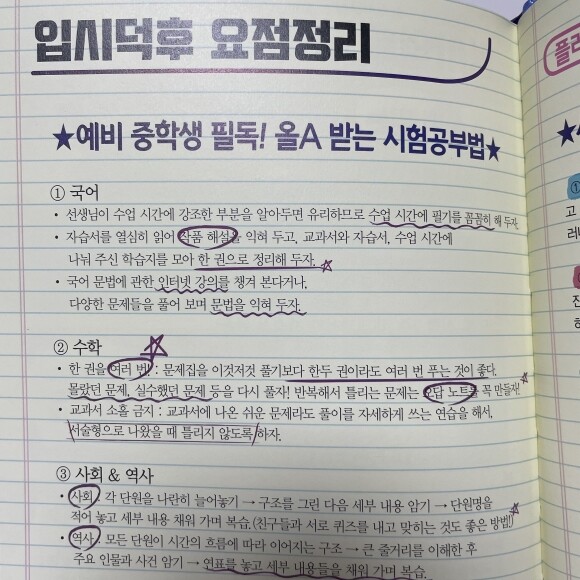 입시덕후 요점정리
★예비 중학생 필독! 올A 받는 시험공부법★
① 국어
• 선생님이 수업 시간에 강조한 부분을 알아두면 유리하므로 수업 시간에 필기를 꼼꼼히 해 두자.
• 자습서를 열심히 읽어 작품 해설을 익혀 두고, 교과서와 자습서, 수업 시간에
나눠 주신 학습지를 모아 한 권으로 정리해 두자.
• 국어 문법에 관한 인터넷 강의를 챙겨 본다거나,
다양한 문제들을 풀어 보며 문법을 익혀 두자.
② 수학
• 한 권을 여러 번! : 문제집을 이것저것 풀기보다 한두 권이라도 여러 번 푸는 것이 좋다.
몰랐던 문제, 실수했던 문제 등을 다시 풀자! 반복해서 틀리는 문제는 오답 노트를 꼭 만들자!
• 교과서 소홀 금지 : 교과서에 나온 쉬운 문제라도 풀이를 자세하게 쓰는 연습을 해서,
서술형으로 나왔을 때 틀리지 않도록 하자.
③ 사회 & 역사
• 사회 : 각 단원을 나란히 늘어놓기 → 구조를 그린 다음 세부 내용 암기 → 단원명을
적어 놓고 세부 내용 채워 가며 복습. (친구들과 서로 퀴즈를 내고 맞히는 것도 좋은 방법!)
• 역사 : 모든 단원이 시간의 흐름에 따라 이어지는 구조 → 큰 줄거리를 이해한 후
주요 인물과 사건 암기 → 연표를 놓고 세부 내용들을 채워 가며 복습.
플러
①
고
러
진
하